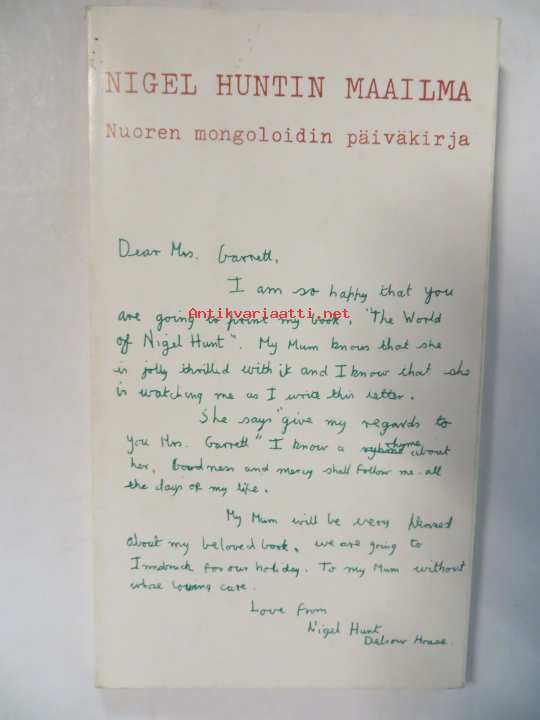 NIGEL HUNTIN MAAILMA
Nuoren mongoloidin päiväkirja
Dear Mrs. Garrett,
I am so happy that you
are going to print my book, "The World
Antikvariaatti.net
of Nigel Hunt". My Mum knows that she
is jolly thrilled with it and I know that she
is watching me as I write this letter.
She says "give my regards to
you Mrs. Garrett" I know a rhyme about
her, Goodness and mercy shall follow me all
the days of my life.
My Mum will be very pleased
about my beloved book. we are going to
Innsbruck for our holiday. To my Mum without
whose loving care.
Love from
Nigel Hunt
House.